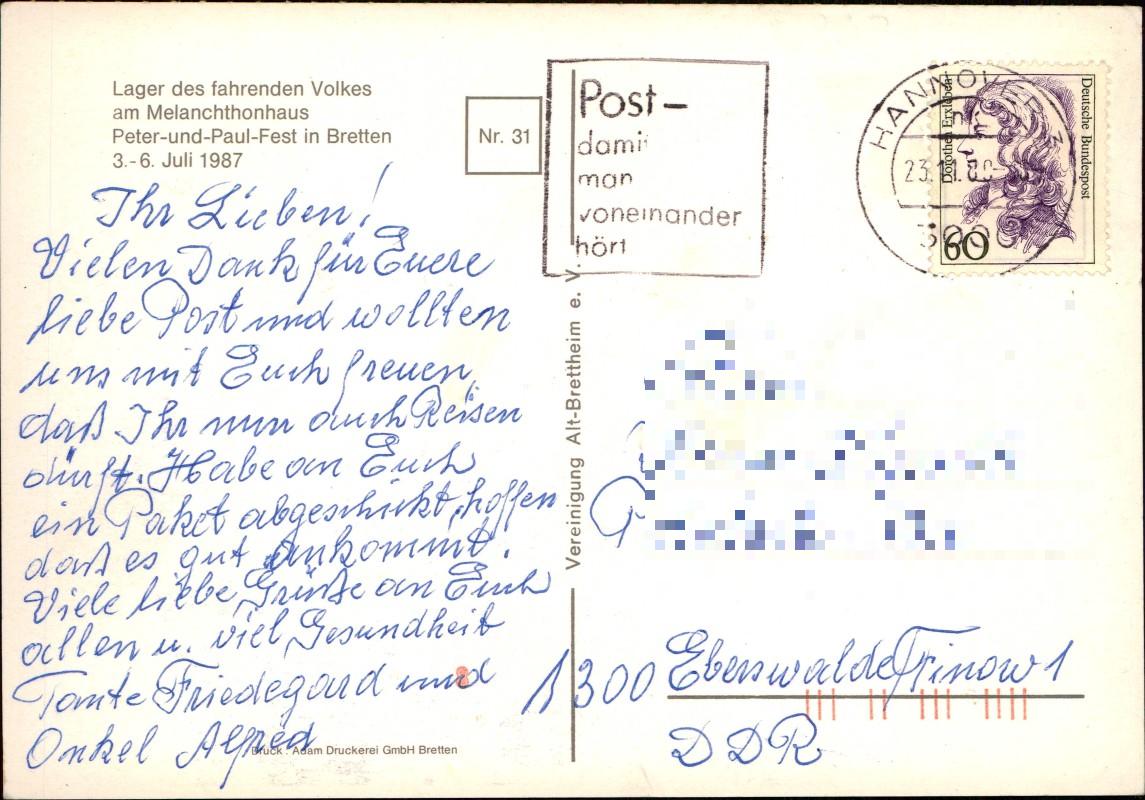 Lager des fahrenden Volkes
am Melanchthonhaus
Peter-und-Paul-Fest in Bretten
3.-6. Juli 1987
Nr. 31
Post-
damit
man
voneinander
hört
HANNOVER
23.11.89
Deutsche Bundespost
Dorothea Erxleben
60
Ihr Lieben!
Vielen Dank für Euere
liebe Post und wollten
uns mit Euch freuen,
daß Ihr nun auch Reisen
dürft. Habe an Euch
ein Paket abgeschickt, hoffen
daß es gut ankommt.
Viele liebe Grüße an Euch
allen u. viel Gesundheit
Tante Friedegard und
Onkel Alfred
Druck: Adam Druckerei GmbH Bretten
Vereinigung Alt-Brettheim e. V.
1300 Eberswalde Finow 1
DDR